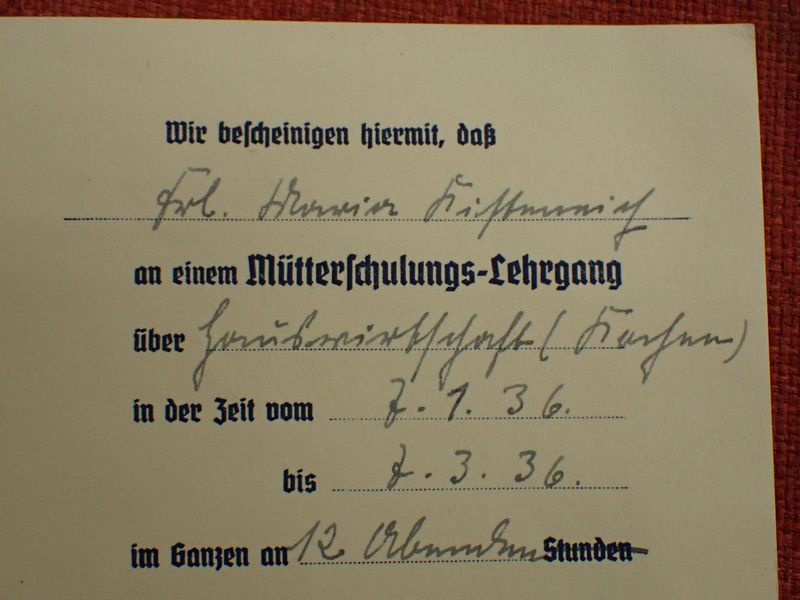 Wir bescheinigen hiermit, daß
Frl. Maria
an einem Mütterschulungs-Lehrgang
über Hauswirtschaft (Kochen)
in der Zeit vom 7. 1. 36.
bis 7. 3. 36.
im Ganzen an 12 Abenden Stunden